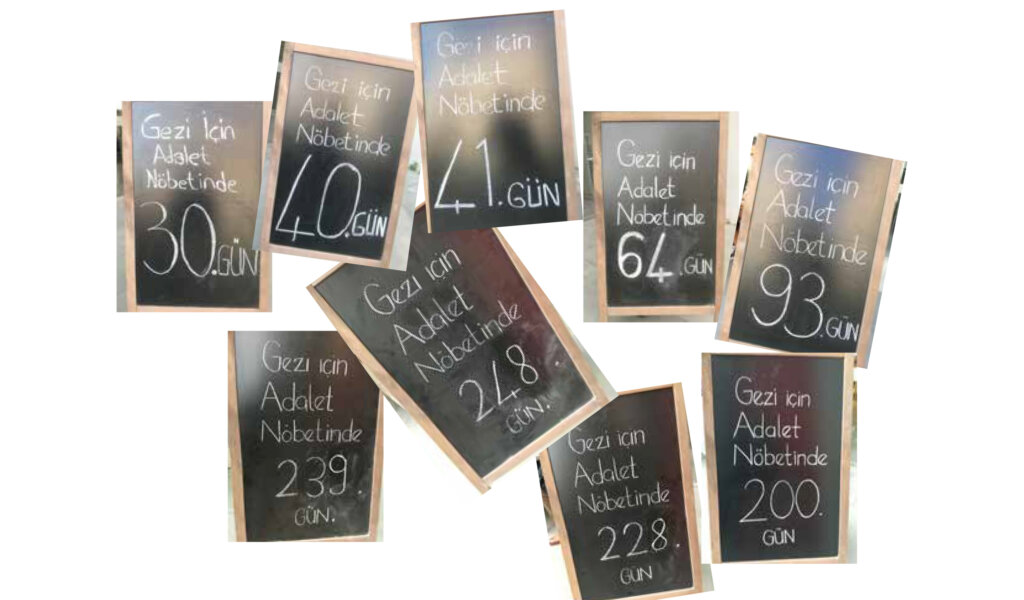 Gezi İçin
Adalet
Nöbetinde
30.GÜN
Gezi için
Adalet
Nöbetinde
40.GÜN
Gezi için
Adalet
Nöbetinde
41.GÜN
Gezi için
Adalet
Nöbetinde
64.GÜN
Gezi için
Adalet
Nöbetinde
93.GÜN
Gezi için
Adalet
Nöbetinde
248
GÜN.
Gezi için
Adalet
Nöbetinde
239.
GÜN.
Gezi için
Adalet
Nöbetinde
228.
GÜN
Gezi için
Adalet
Nöbetinde
200.
GÜN